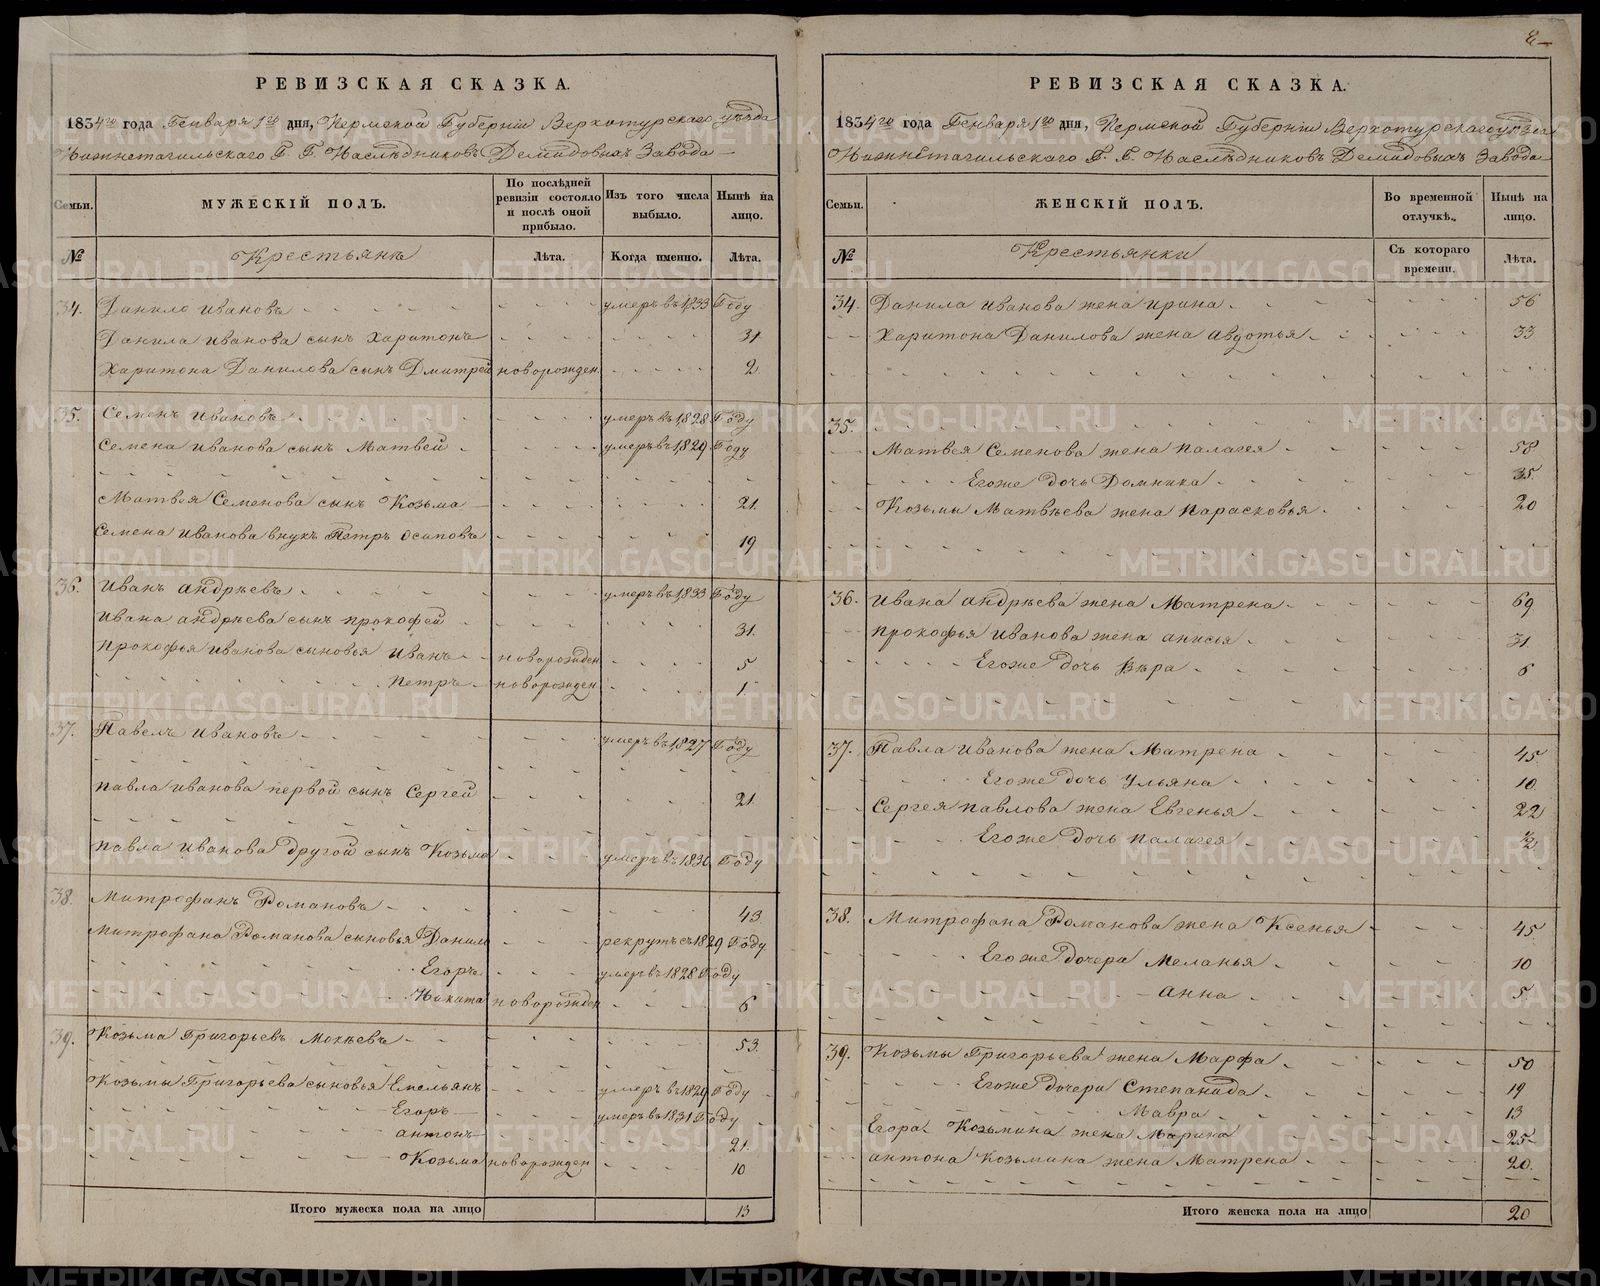 8
РЕВИЗСКАЯ СКАЗКА.
1834го года Генваря 1го дня, Пермской Губернiи Верхотурскаго уѣзда
Нижнетагильскаго Г. Г. Наслѣдниковъ Демидовыхъ Завода
Семьи.
МУЖЕСКIЙ ПОЛЪ.
По послѣдней ревизiи состояло и послѣ оной прибыло.
Изъ того числа выбыло.
Нынѣ на лицо.
№
Крестьянъ
Лѣта.
Когда именно.
Лѣта.
34. Данило Ивановъ умеръ въ 1833 Году
Данила Иванова сынъ Харитонъ 31
Харитона Данилова сынъ Дмитрей новорожден. 2
35. Семенъ Ивановъ умеръ въ 1828 Году
Семена Иванова сынъ Матвей умеръ въ 1829 Году
Матвея Семенова сынъ Козьма 21.
Семена Иванова внукъ Петръ Осиповъ 19
36. Иванъ Андрѣевъ умеръ въ 1833 Году
Ивана Андрѣева сынъ Прокофей 31.
Прокофья Иванова сыновья Иванъ новорожден 5
Петръ новорожден 1
37. Павелъ Ивановъ умеръ въ 1827 Году
Павла Иванова первой сынъ Сергей 21.
Павла Иванова другой сынъ Козьма умеръ въ 1830 Году
38. Митрофанъ Романовъ 43
Митрофана Романова сыновья Данило рекрутъ съ 1829 Году
Егоръ умеръ въ 1828 Году
Никита новорожден 6
39. Козьма Григорьевъ Мокѣевъ 53.
Козьмы Григорьева сыновья Емельянъ умеръ въ 1829 Году
Егоръ умеръ въ 1831 Году
Антонъ 21.
Козьма новорожден 10
Итого мужеска пола на лицо 13
РЕВИЗСКАЯ СКАЗКА.
1834го года Генваря 1го дня, Пермской Губернiи Верхотурскаго уѣзда
Нижнетагильскаго Г. Г. Наслѣдниковъ Демидовыхъ Завода
Семьи.
ЖЕНСКIЙ ПОЛЪ.
Во временной отлучкѣ.
Нынѣ на лицо.
№
Крестьянки
Съ котораго времени.
Лѣта.
34. Данила Иванова жена Ирина 56
Харитона Данилова жена Авдотья 33
35.
Матвея Семенова жена Палагея 58
Егоже дочь Домника 35
Козьмы Матвѣева жена Парасковья 20
36. Ивана Андрѣева жена Матрена 69
Прокофья Иванова жена Анисья 31
Егоже дочь Вѣра 6
37. Павла Иванова жена Матрена 45
Егоже дочь Ульяна 10
Сергея Павлова жена Евгенья 22
Егоже дочь Палагея ½
38. Митрофана Романова жена Ксенья 45
Егоже дочери Меланья 10
Анна 5
39. Козьмы Григорьева жена Марфа 50
Егоже дочери Степанида 19
Мавра 13
Егора Козьмина жена Марина 25
Антона Козьмина жена Матрена 20.
Итого женска пола на лицо 20
METRIKI.GASO-URAL.RU